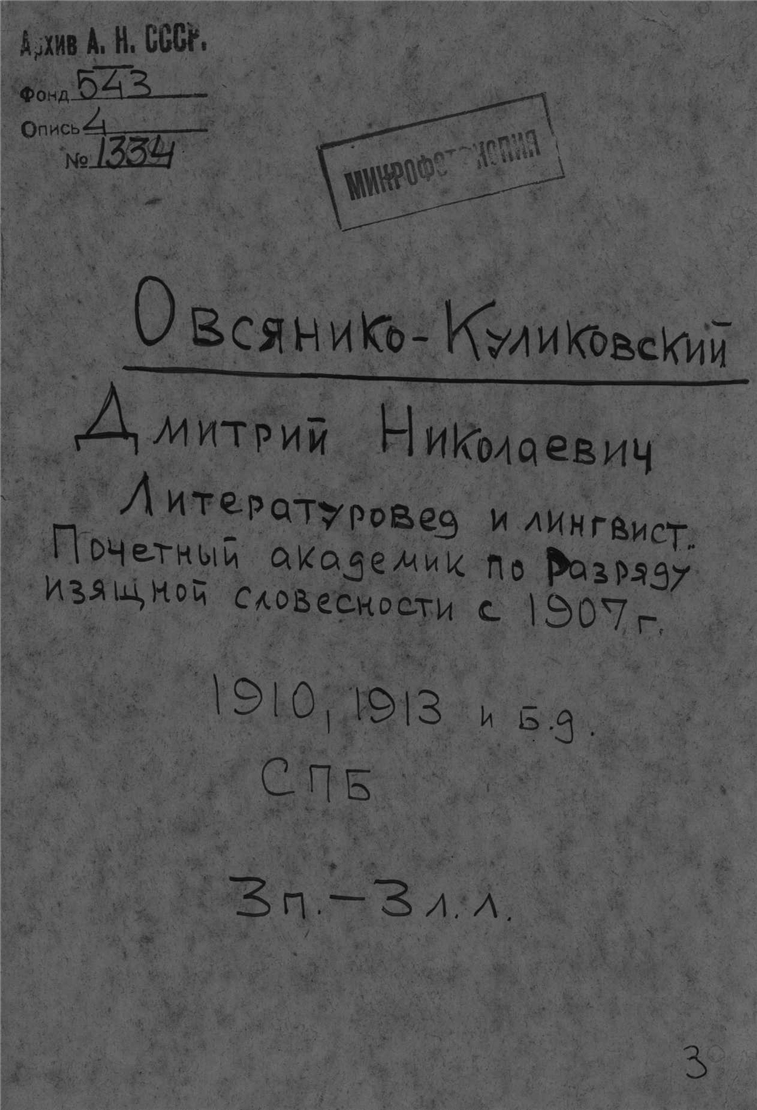 Архив А. Н. СССР.
Фонд 543
Опись 4
№ 1334
МИКРОФОТОКОПИЯ
Овсянико-Куликовский
Дмитрий Николаевич
Литературовед и лингвист.
Почетный академик по Разряду
изящной словесности с 1907 г.
1910, 1913 и б.д.
СПБ
3 п. – 3 л. л.
3